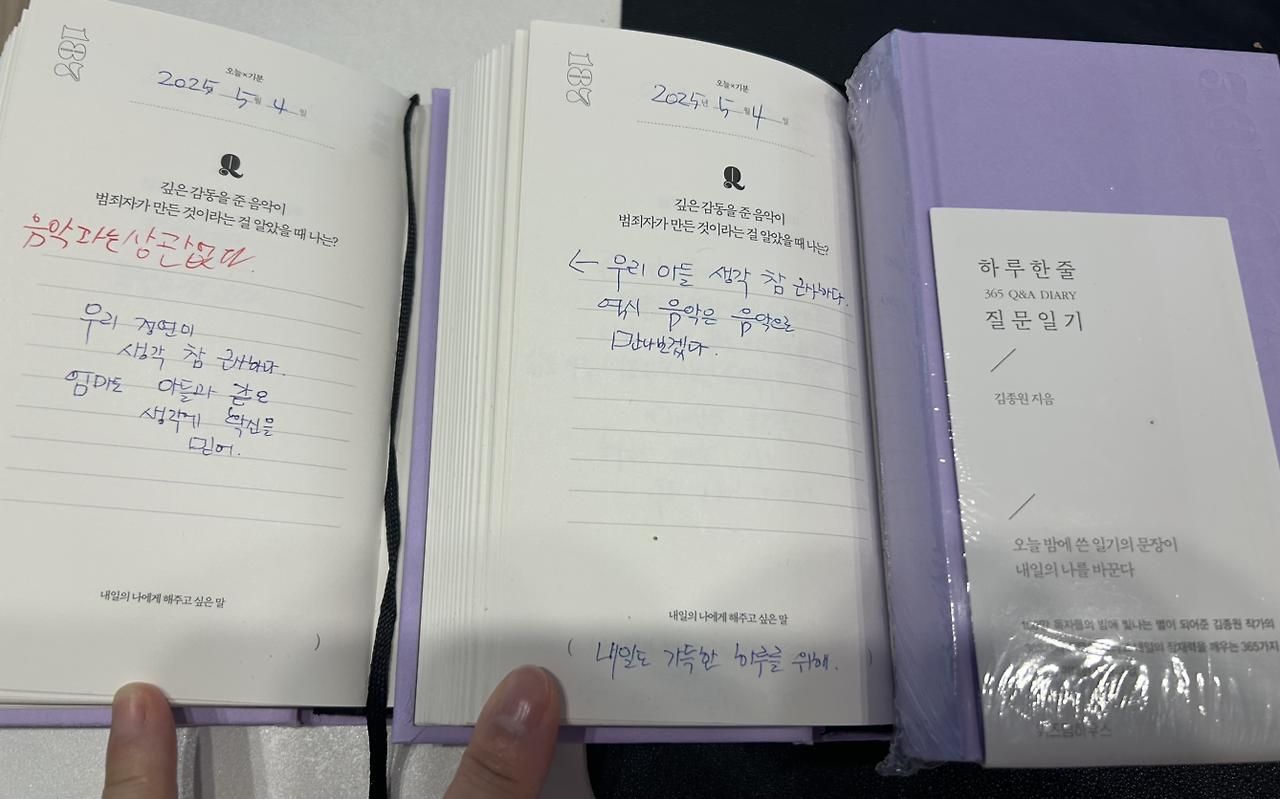 187
오늘×기분
2025 5월 4일
Q
깊은 감동을 준 음악이
범죄자가 만든 것이라는 걸 알았을 때 나는?
음악과는 상관없다.
우리 정연이
생각 참 근사하다.
엄마도 아들과 같은
생각에 확신을
믿어.
내일의 나에게 해주고 싶은 말
)
187
오늘×기분
2025년 5월 4일
Q
깊은 감동을 준 음악이
범죄자가 만든 것이라는 걸 알았을 때 나는?
← 우리 아들 생각 참 근사하다.
역시 음악은 음악으로
만나보겠다.
내일의 나에게 해주고 싶은 말
( 내일도 가득한 하루를 위해. )
하루 한 줄
365 Q&A DIARY
질문 일기
김종원 지음
오늘 밤에 쓴 일기의 문장이
내일의 나를 바꾼다
독자들의 밤에 빛나는 별이 되어준 김종원 작가의
내일의 잠재력을 깨우는 365가지
위즈덤하우스